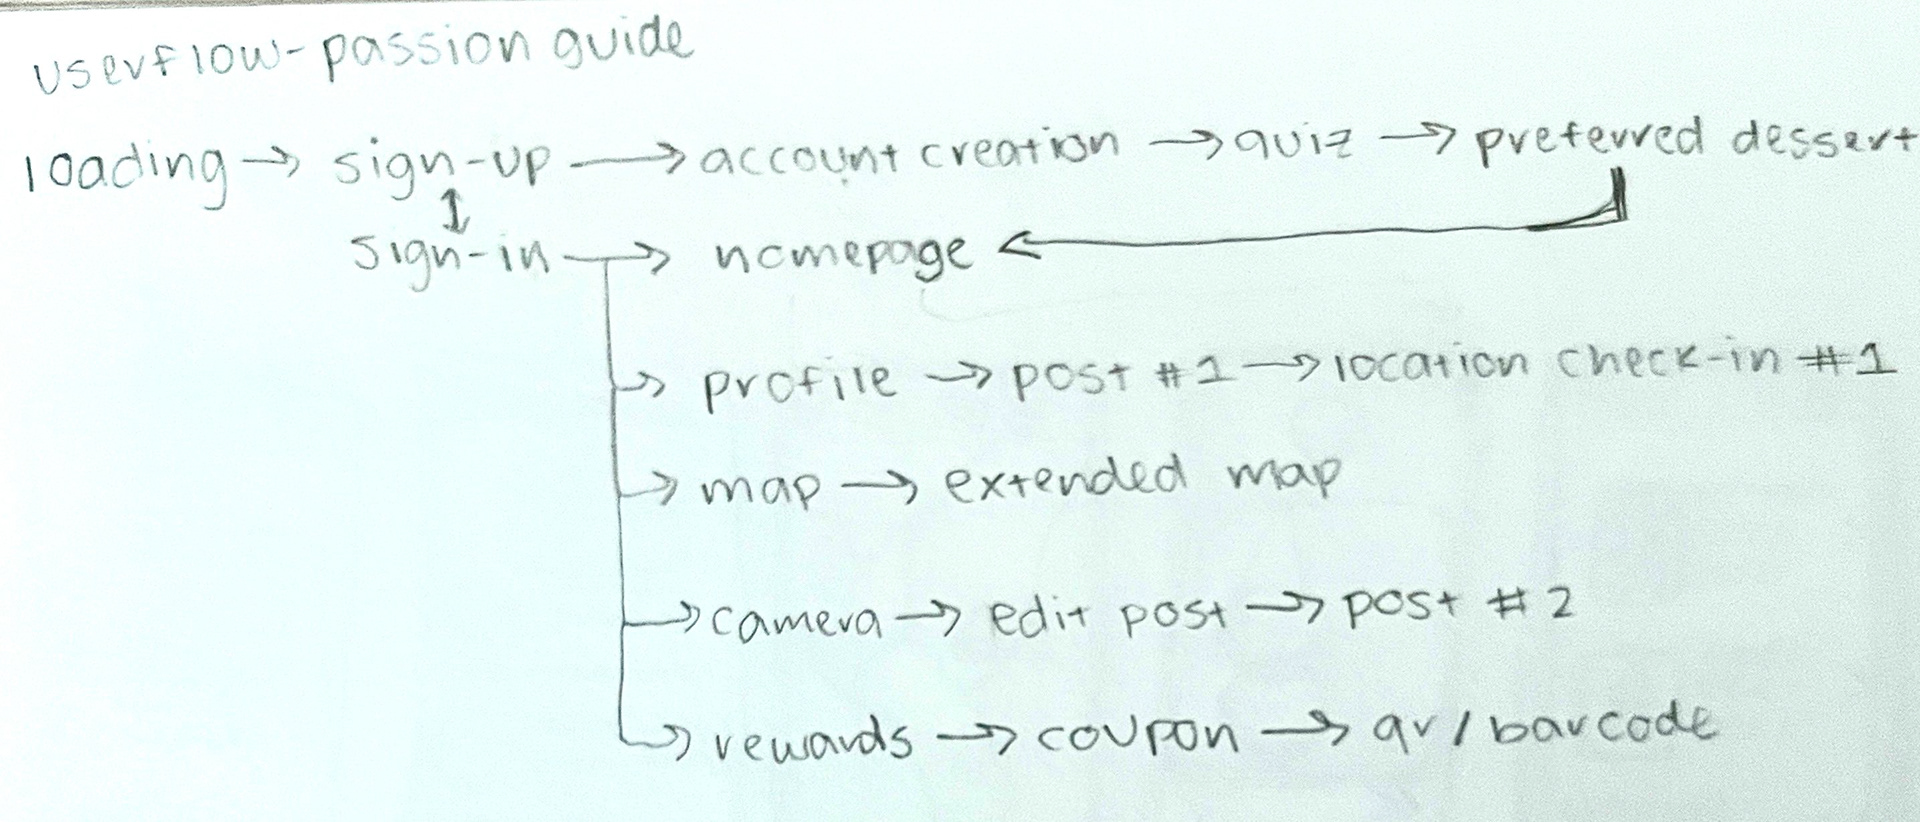 userflow-passion guide
loading → sign-up → account creation → quiz → preferred dessert
↕
sign-in → homepage ←
→ profile → post #1 → location check-in #1
→ map → extended map
→ camera → edit post → post #2
→ rewards → coupon → qr/barcode